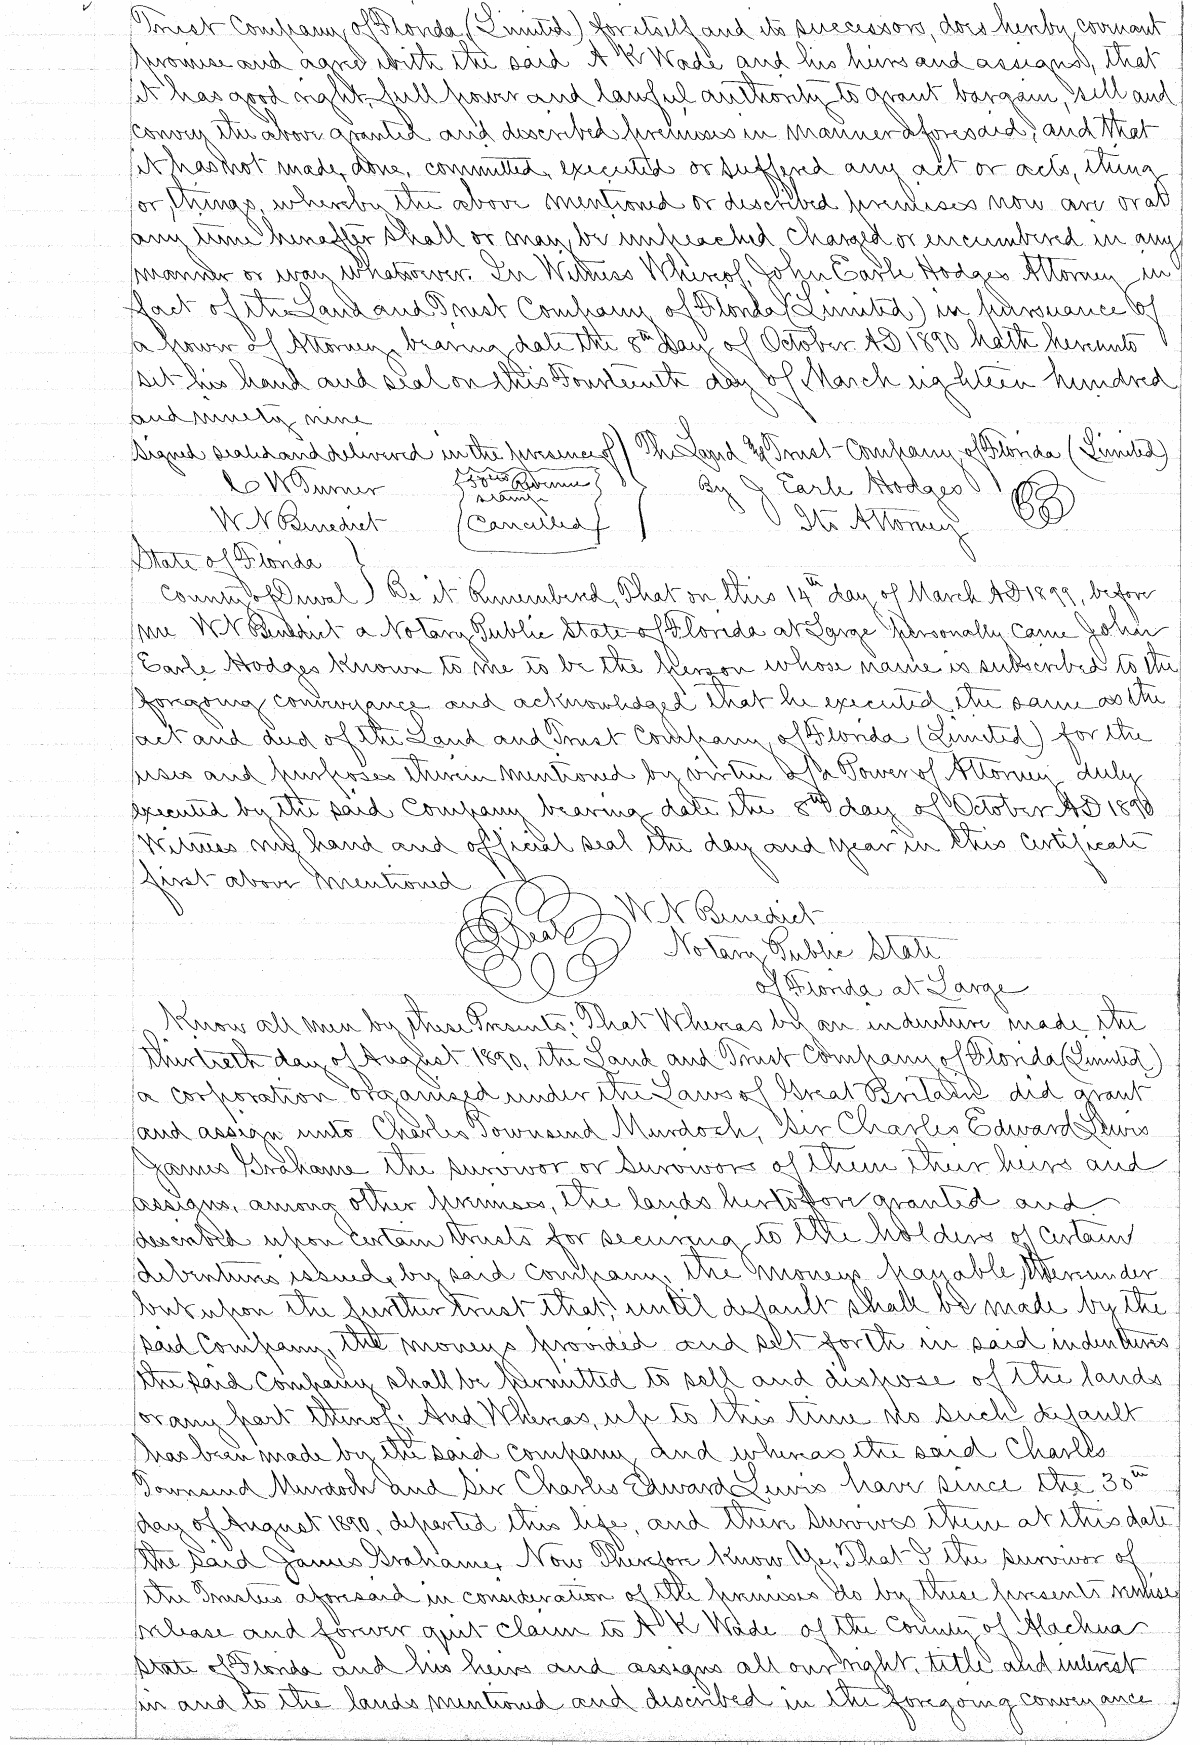 Trust Company of Florida (Limited) for itself and its successors, does hereby covenant
promise and agree with the said A K Wade and his heirs and assigns, that
it has good right, full power and lawful authority to grant bargain, sell and
convey the above granted and described premises in manner aforesaid; and that
it has not made, done, committed, executed or suffered any act or acts, thing
or things, whereby the above mentioned or described premises now are or at
any time hereafter shall or may be impeached charged or encumbered in any
manner or way whatsoever. In Witness Whereof, John Earle Hodges Attorney in
fact of the Land and Trust Company of Florida (Limited) in pursuance of
a power of Attorney, bearing date the 8th day of October AD 1890 hath hereunto
set his hand and seal on this Fourteenth day of March eighteen hundred
and ninety nine
Signed sealed and delivered in the presence of) The Land & Trust Company of Florida (Limited)
C W Turner Revenue By J Earle Hodges
stamps
W N Benedict (Cancelled) Its Attorney
State of Florida
County of Duval) Be it Remembered, That on this 14th day of March AD 1899, before
me W N Benedict a Notary Public State of Florida at Large personally came John
Earle Hodges known to me to be the person whose name is subscribed to the
forgoing conveyance and acknowledged that he executed the same as the
act and deed of the Land and Trust Company of Florida (Limited) for the
uses and purposes therein mentioned by virtue of a Power of Attorney duly
executed by the said Company bearing date the 8th day of October AD 1890
Witness my hand and official seal the day and year in this certificate
first above mentioned
Seal W N Benedict
Notary Public State
of Florida at Large
Know all men by these Presents: That Whereas by an indenture made the
thirtieth day of August 1890, the Land and Trust Company of Florida (Limited)
a corporation organised under the Laws of Great Britain did grant
and assign unto Charles Townsend Murdoch, Sir Charles Edward Lewis
James Grahame the survivor or survivors of them their heirs and
assigns, among other premises, the lands hertofore granted and
described upon certain trusts for securing to the holders of certain
debentures issued, by said Company, the moneys payable thereunder
but upon the further trust that, until default shall be made by the
said Company, the moneys provided and set forth in said indentures
the said Company shall be permitted to sell and dispose of the lands
or any part thereof; And Whereas, up to this time no such default
has been made by the said Company and whereas the said Charles
Townsend Murdoch and Sir Charles Edward Lewis have since the 30th
day of August 1890, departed this life, and there survives them at this date
the said James Grahame, Now Therefore Know Ye, That I the survivor of
the Trustees aforesaid in consideration of the premises do by these presents remise
release and forever quit claim to A K Wade of the County of Alachua
State of Florida and his heirs and assigns all our right, title and interest
in and to the lands mentioned and described in the foregoing conveyance